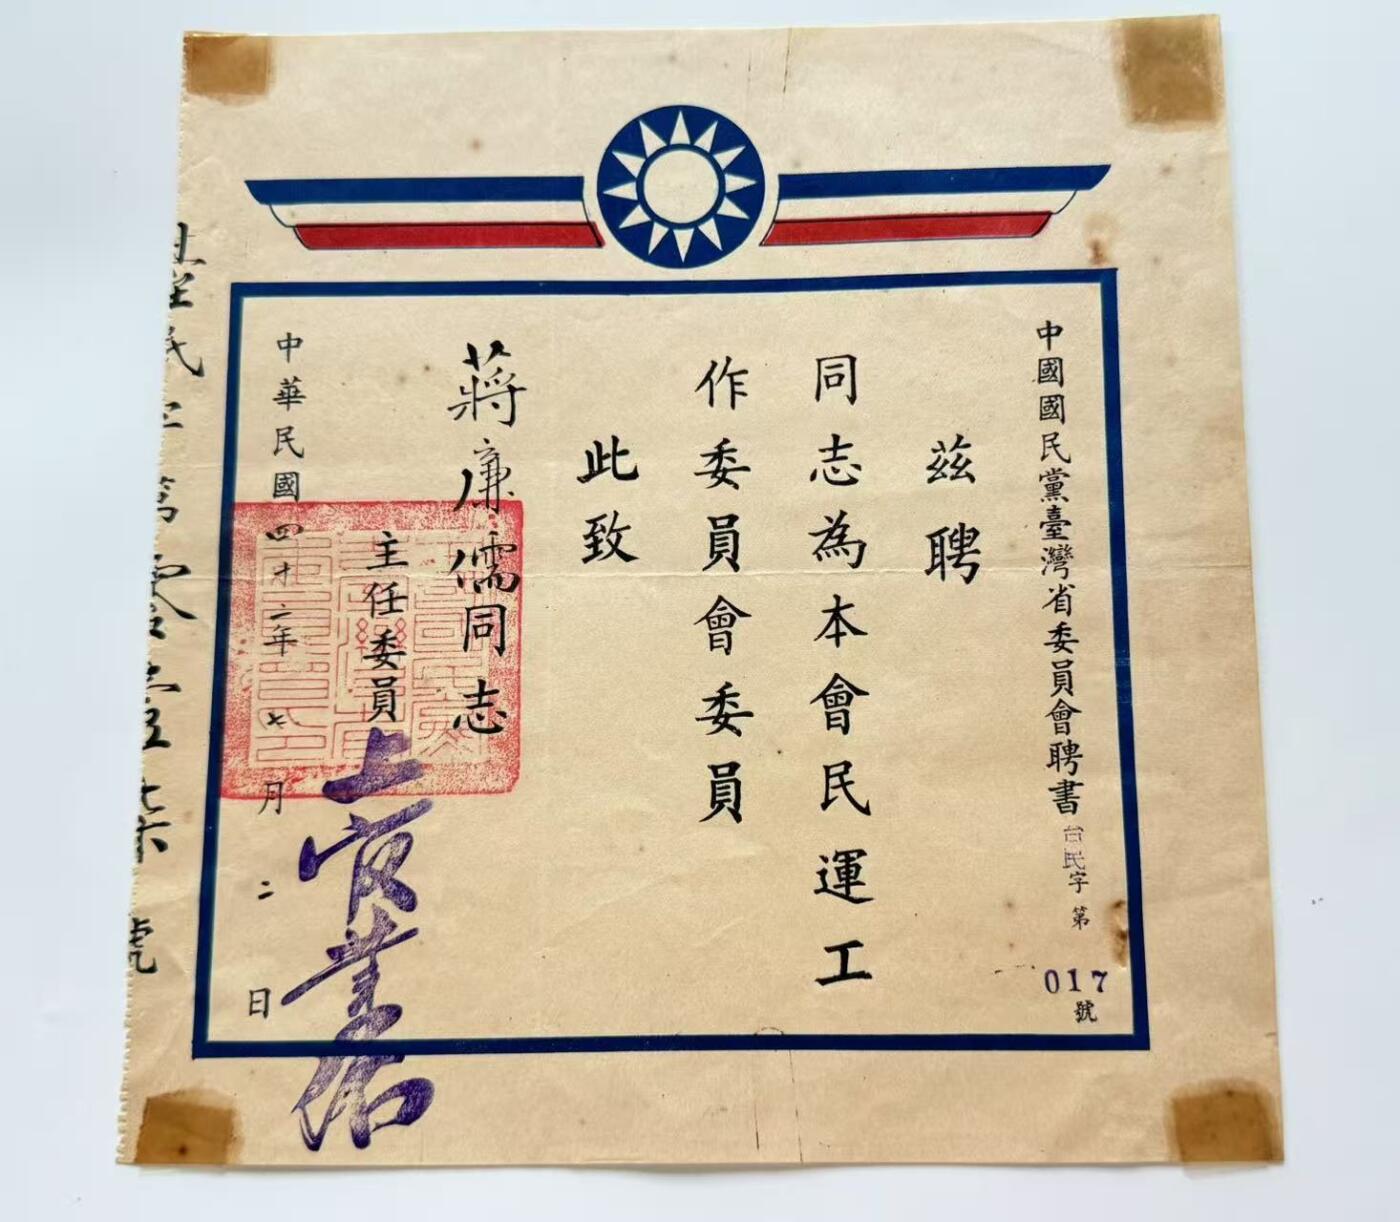 中國國民黨臺灣省委員會聘書 台民字第017號
茲聘
同志為本會民運工
作委員會委員
此致
蔣廉儒同志
主任委員 上官業佑
中華民國四十二年七月二日
民字第零壹柒號